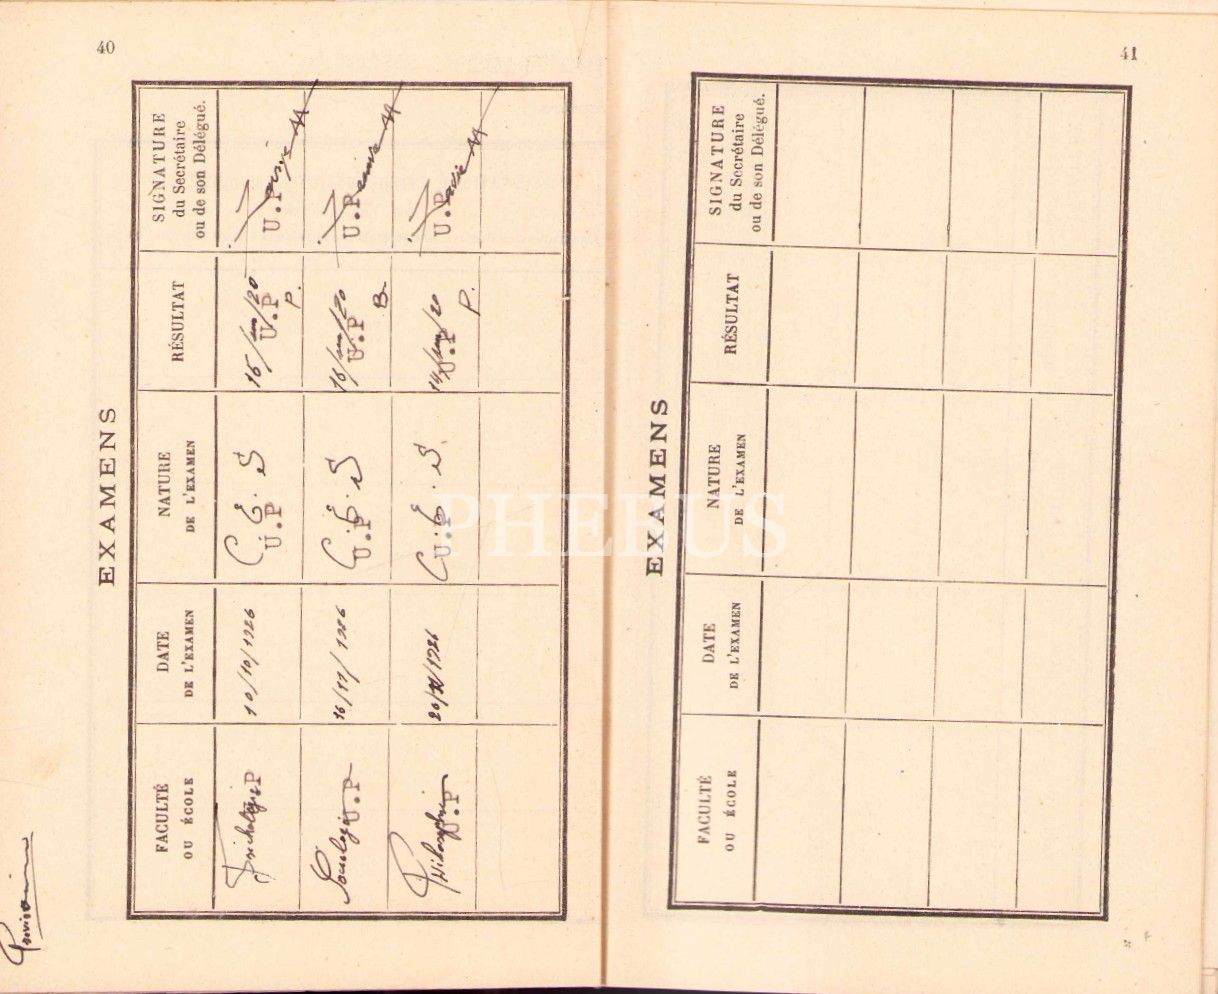 40
EXAMENS
FACULTÉ
OU ÉCOLE
DATE
DE L'EXAMEN
NATURE
DE L'EXAMEN
RÉSULTAT
SIGNATURE
du Secrétaire
ou de son Délégué.
U.P
10/10/1926
C. E. S
U.P
15/ /20
U.P
P.
U.P
Sociologie
U.P
16/11/1926
C. E. S
U.P
16/ /20
U.P
B
U.P
Philosophie
U.P
20/ /1926
C. E. S.
U.P
14/ /20
U.P
P.
U.P
41
EXAMENS
FACULTÉ
OU ÉCOLE
DATE
DE L'EXAMEN
NATURE
DE L'EXAMEN
RÉSULTAT
SIGNATURE
du Secrétaire
ou de son Délégué.
PHEBUS